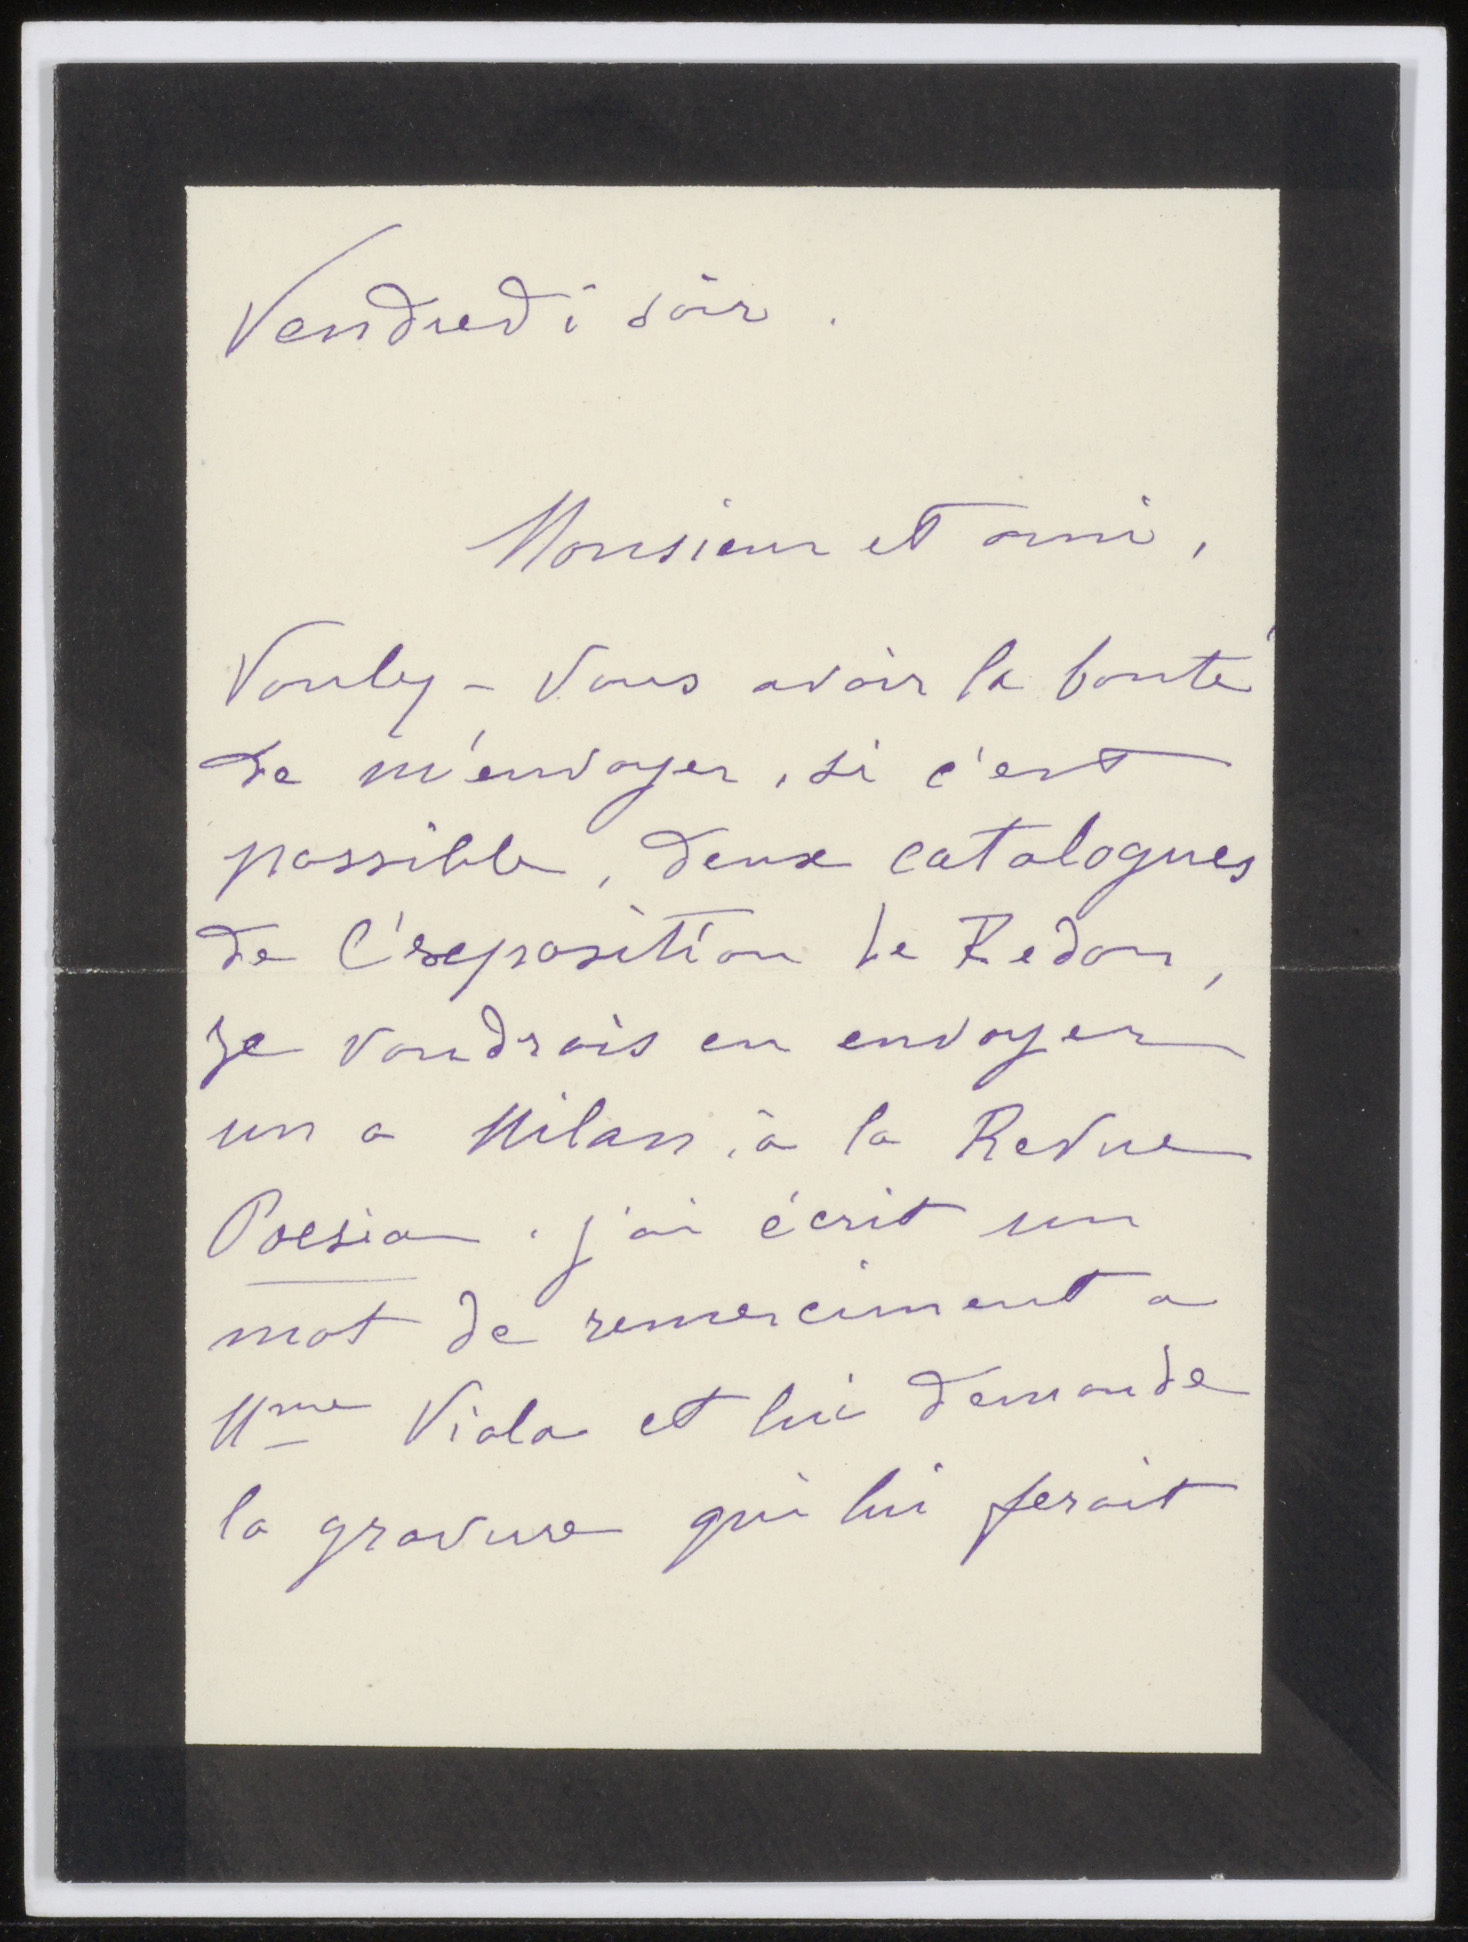 Vendredi soir.
Monsieur et ami,
Voulez-vous avoir la bonté
de m'envoyer, si c'est
possible, deux catalogues
de l'exposition de Redon,
je voudrais en envoyer
un a Milan, à la Revue
Poesia. j'ai écrit un
mot de remerciment a
Mme Viola et lui demande
la gravure qui lui ferait